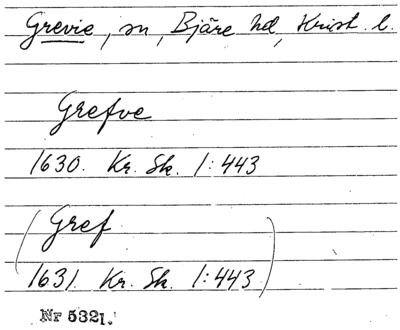 Grevie, sn, Bjäre hd, Krist. l.
Grefve
1630. Kr. Sk. 1:443
(Gref
1631. Kr. Sk. 1:443)
Nr 5321.